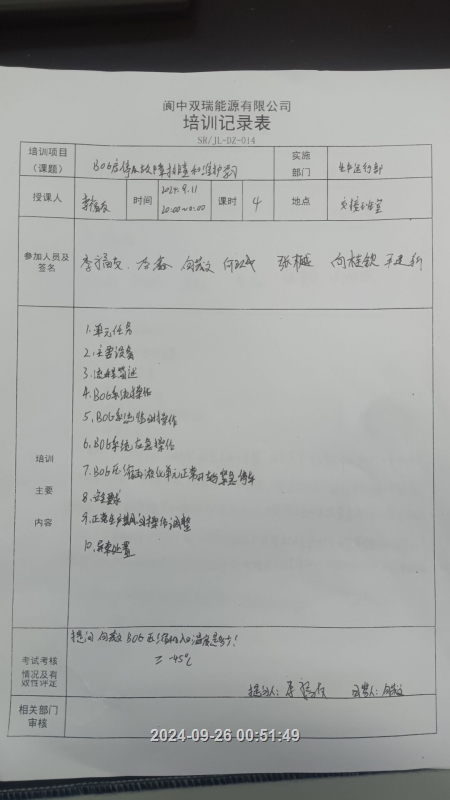 阆中双瑞能源有限公司
培训记录表
SR/JL-DZ-014
培训项目
(课题)
BOG启停及故障排查和维护学习
实施
部门
生产运行部
授课人
时间
2024.9.11
20:00~0:00
课时
4
地点
交接班室
参加人员及
签名
张樾
向桂钦
培训
主要
内容
1.单元任务
2.主要设备
3.流程简述
4.BOG系统操作
5.BOG系统启动操作
6.BOG系统应急操作
7.BOG压缩再液化单元正常开车紧急停车
8.安全要求
9.正常生产期间的操作调整
10.异常处置
考试考核
情况及有
效性评证
提问 BOG压缩机入口温度是多少!
≥-45℃
提问人:
回答人:
相关部门
审核
2024-09-26 00:51:49